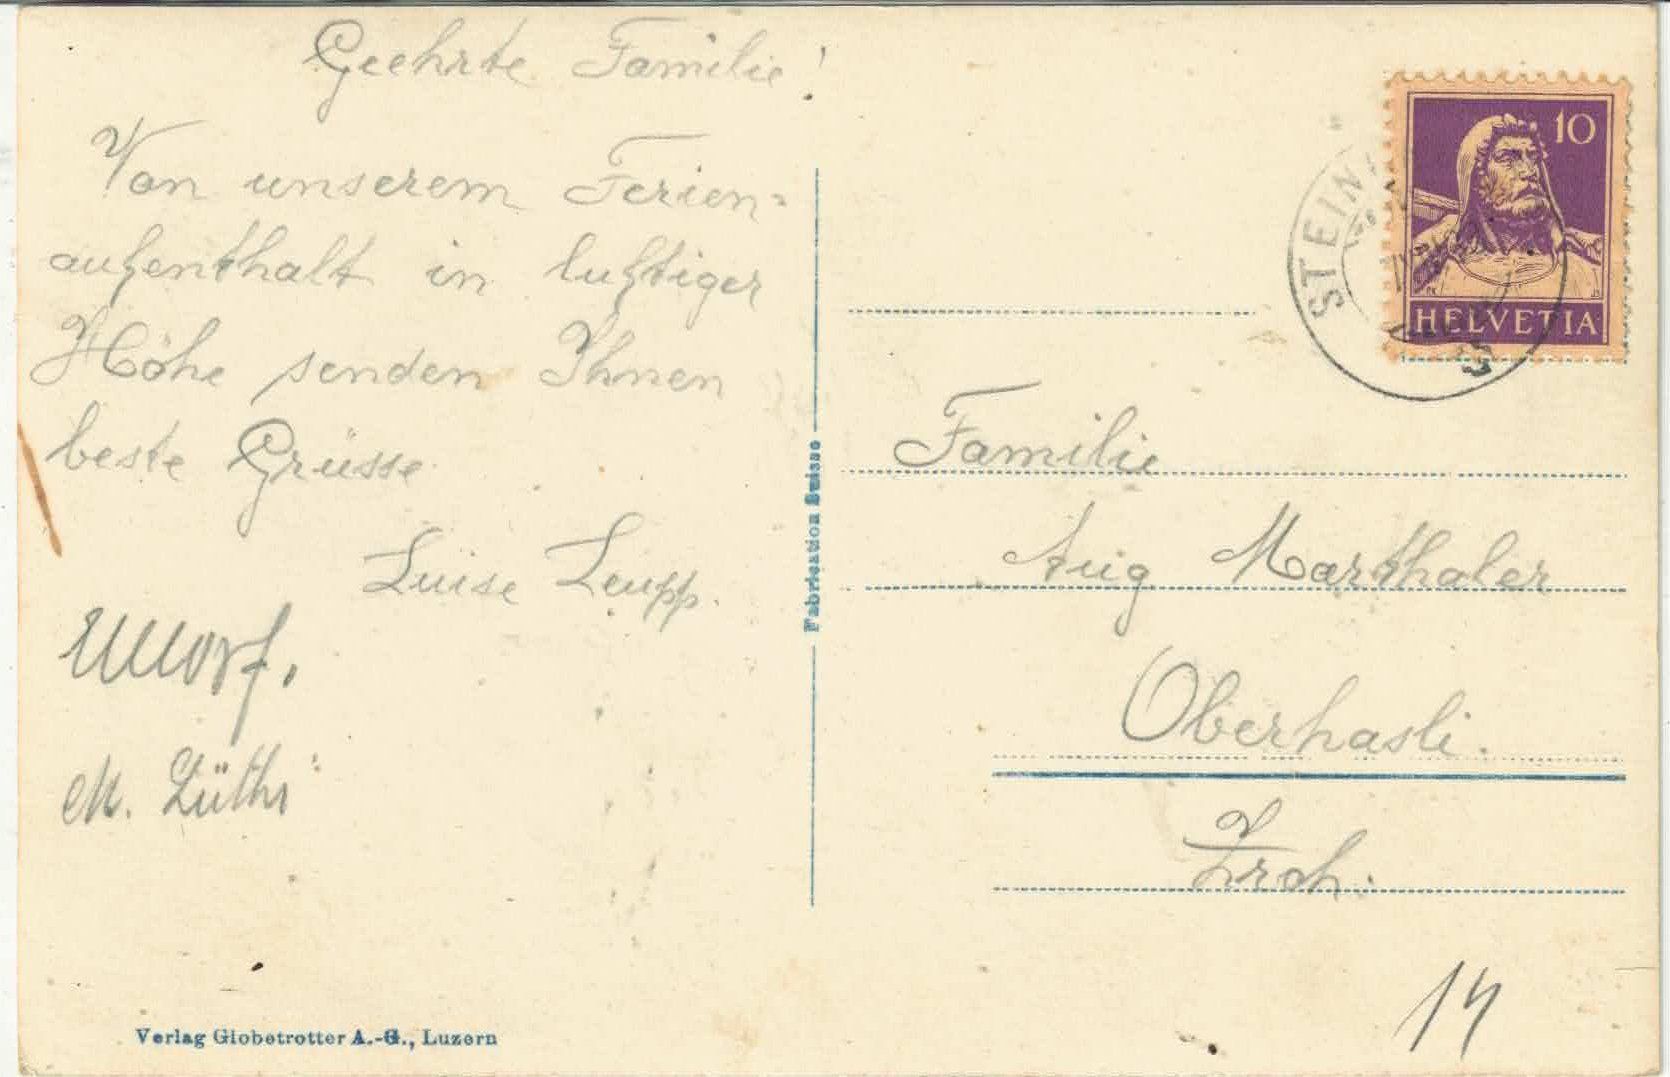 Geehrte Familie!
Von unserem Ferien=
aufenthalt in luftiger
Höhe senden Ihnen
beste Grüsse
Luise Leupp.
EMorf.
M. Lüthi
Verlag Globetrotter A.-G., Luzern
Fabrication Suisse
STEIN
10
HELVETIA
Familie
Aug Marthaler
Oberhasli.
Zrch.
14